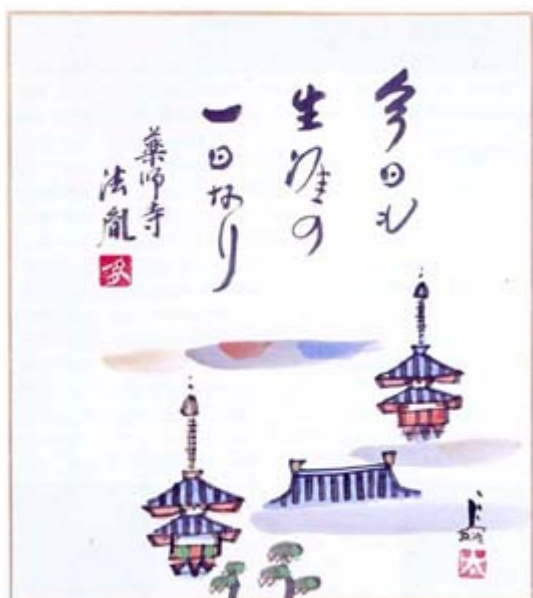 今日も
生涯の
一日なり
薬師寺
法胤